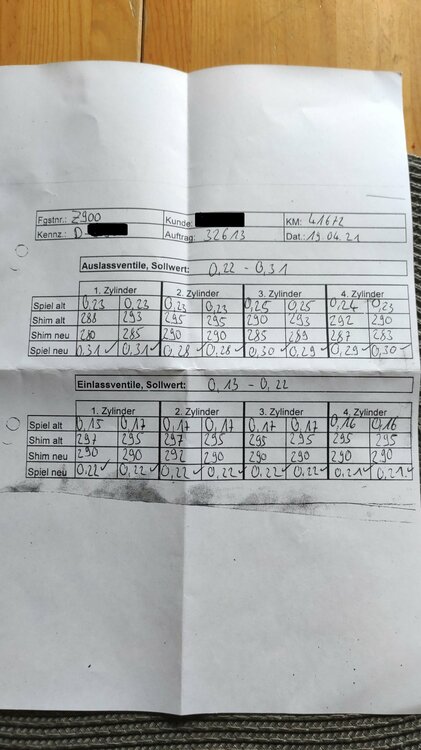 Fgstnr.: Z900 Kunde: KM: 41672
Kennz.: D- Auftrag: 32613 Dat.: 19.04.21
Auslassventile, Sollwert: 0,22 - 0,31
1. Zylinder 2. Zylinder 3. Zylinder 4. Zylinder
Spiel alt 0,23 0,23 0,23 0,23 0,25 0,25 0,24 0,23
Shim alt 288 293 295 295 290 293 292 290
Shim neu 280 285 290 290 285 289 287 283
Spiel neu 0,31 ✓ 0,31 ✓ 0,28 ✓ 0,28 ✓ 0,30 ✓ 0,29 ✓ 0,29 ✓ 0,30 ✓
Einlassventile, Sollwert: 0,13 - 0,22
1. Zylinder 2. Zylinder 3. Zylinder 4. Zylinder
Spiel alt 0,15 0,17 0,17 0,17 0,17 0,17 0,16 0,16
Shim alt 297 295 297 295 295 295 295 295
Shim neu 290 290 292 290 290 290 290 290
Spiel neu 0,22 ✓ 0,22 ✓ 0,22 ✓ 0,22 ✓ 0,22 ✓ 0,22 ✓ 0,21 ✓ 0,21 ✓